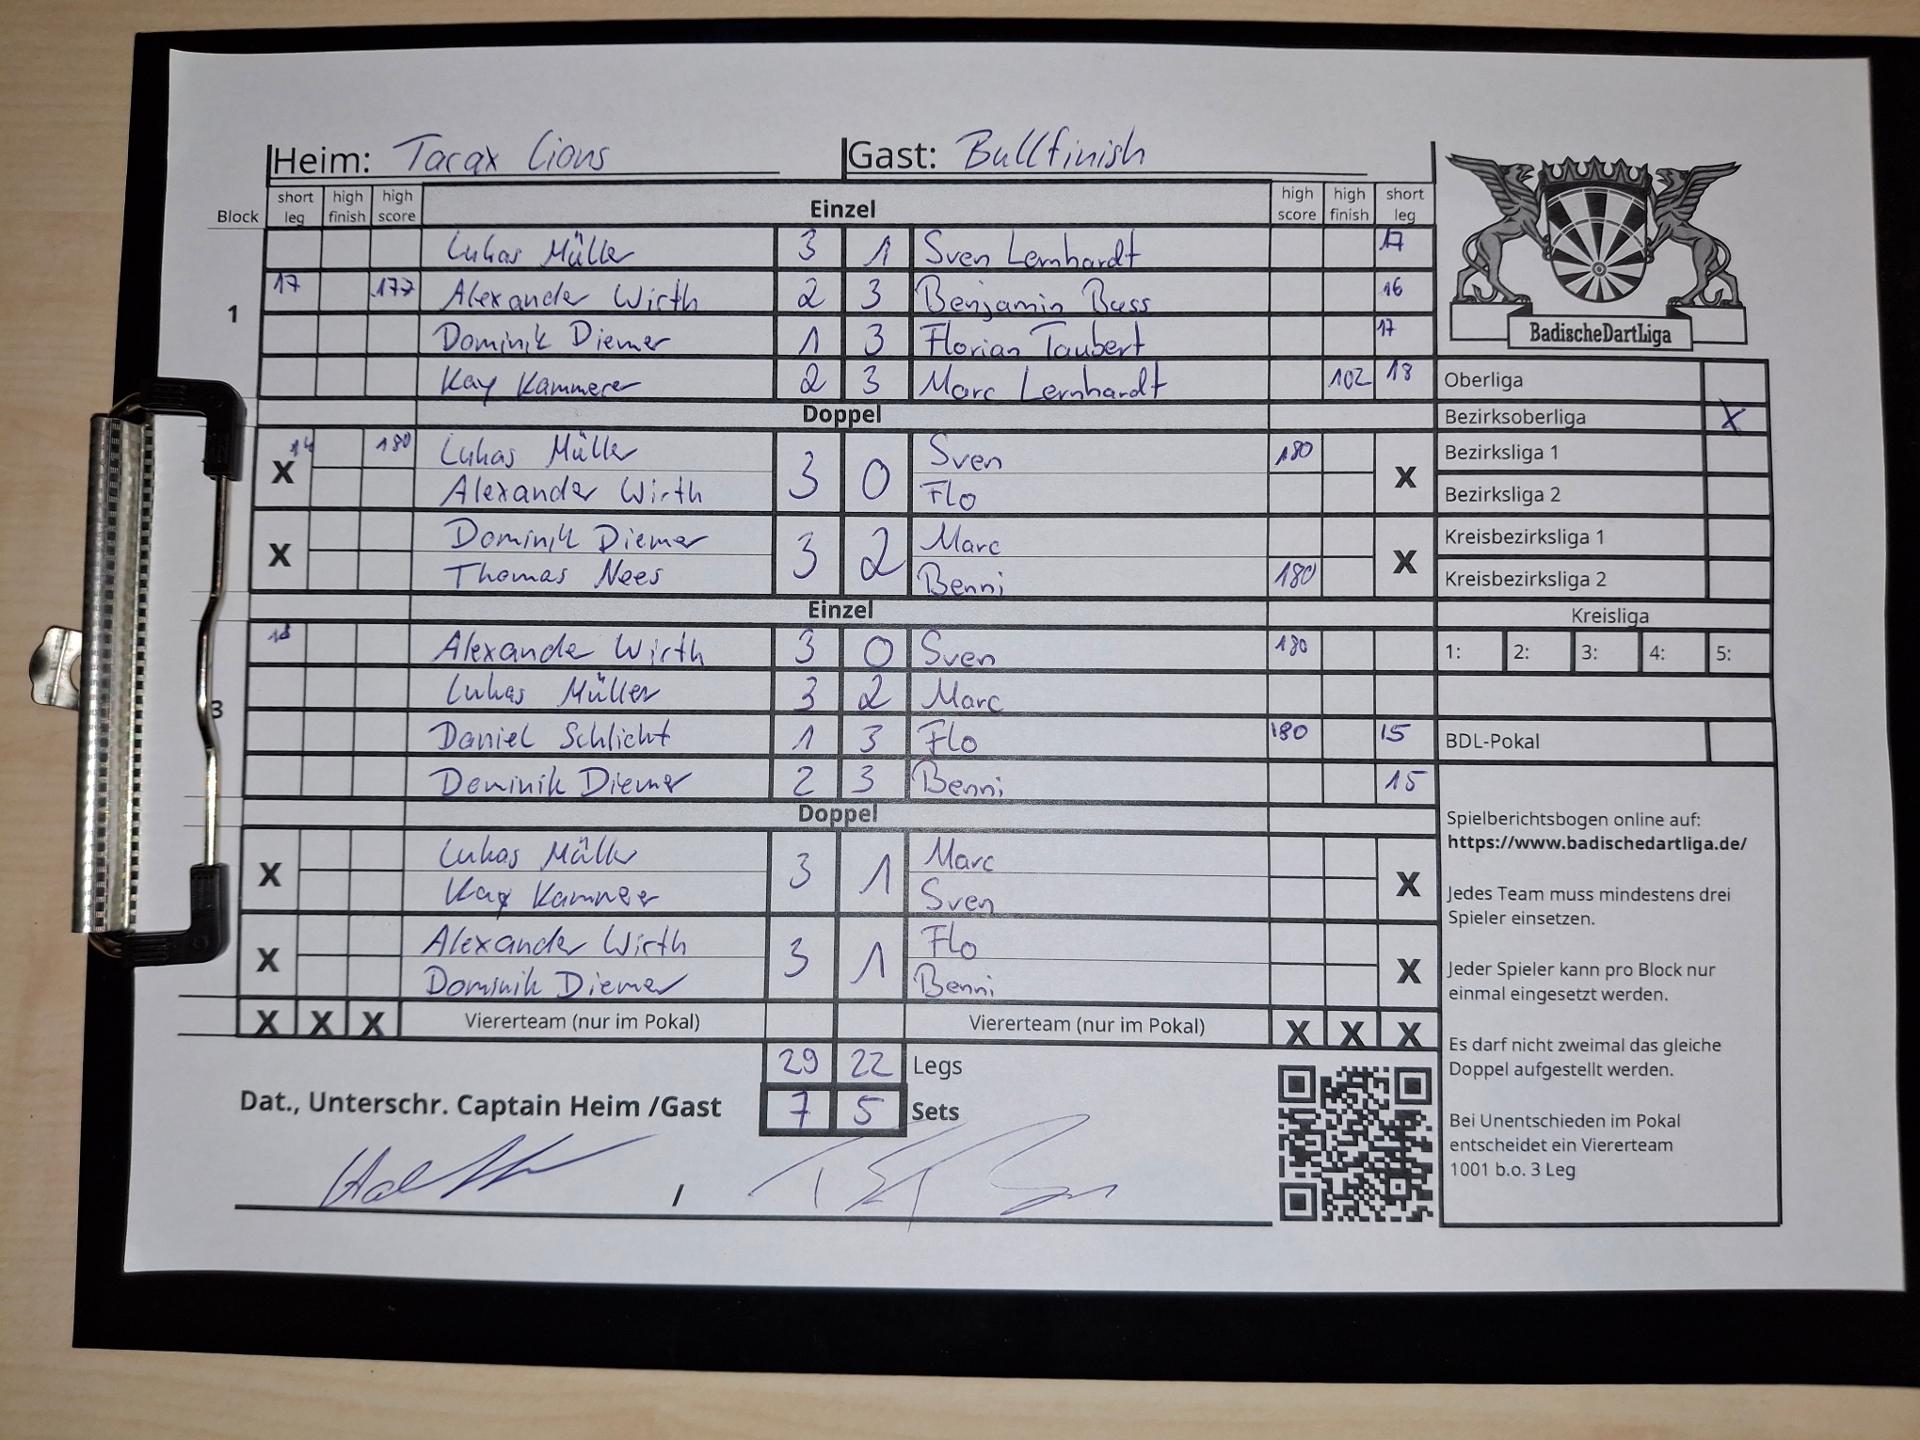 Heim: Tacax Lions Gast: Bullfinish
Block short leg high finish high score Einzel high score high finish short leg
Lukas Müller 3 1 Sven Lernhardt 17
1 17 177 Alexander Wirth 2 3 Benjamin Buss 16
Dominik Diemer 1 3 Florian Taubert 17
Kay Kammerer 2 3 Marc Lernhardt 102 18
Doppel
X 14 180 Lukas Müller 3 0 Sven 180 X
Alexander Wirth Flo
X Dominik Diemer 3 2 Marc X
Thomas Nees Benni 180
Einzel
18 Alexander Wirth 3 0 Sven 180
3 Lukas Müller 3 2 Marc
Daniel Schlicht 1 3 Flo 180 15
Dominik Diemer 2 3 Benni 15
Doppel
X Lukas Müller 3 1 Marc X
Kay Kammerer Sven
X Alexander Wirth 3 1 Flo X
Dominik Diemer Benni
X X X Viererteam (nur im Pokal) Viererteam (nur im Pokal) X X X
29 22 Legs
Dat., Unterschr. Captain Heim /Gast 7 5 Sets
/
BadischeDartLiga
Oberliga
Bezirksoberliga X
Bezirksliga 1
Bezirksliga 2
Kreisbezirksliga 1
Kreisbezirksliga 2
Kreisliga
1: 2: 3: 4: 5:
BDL-Pokal
Spielberichtsbogen online auf:
https://www.badischedartliga.de/
Jedes Team muss mindestens drei
Spieler einsetzen.
Jeder Spieler kann pro Block nur
einmal eingesetzt werden.
Es darf nicht zweimal das gleiche
Doppel aufgestellt werden.
Bei Unentschieden im Pokal
entscheidet ein Viererteam
1001 b.o. 3 Leg